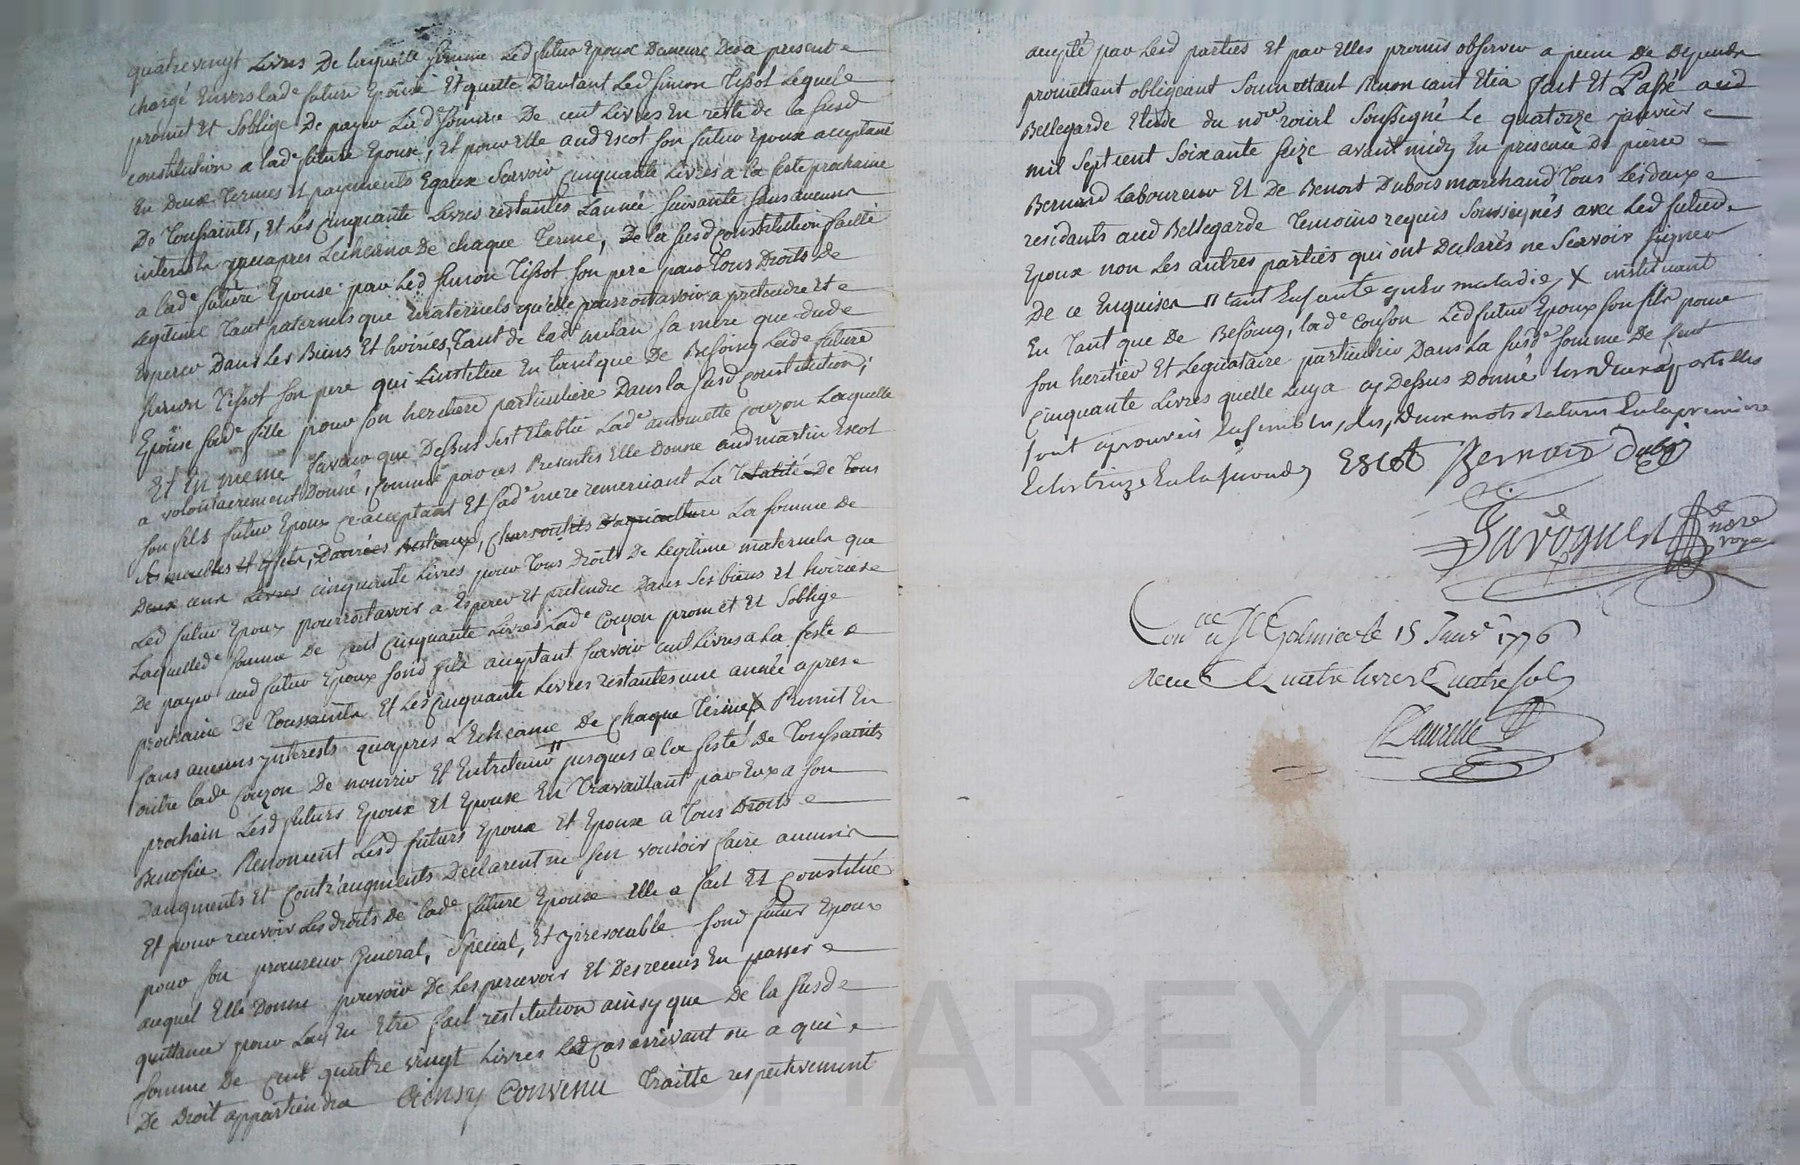 quatre vingt Livres De laquelle somme Led futur Epoux Demeure Des a present
chargé Envers lade future Epouse Et quitte D'autant Led Simon Tissot Lequel
promet Et Soblige De payer La de Somme De cent Livres En reste de la susd
constitution a lade future Epouse, Et pour Elle aud Escot son futur Epoux acceptant
En Deux Termes et payements Egaux Scavoir Cinquante Livres a la feste prochaine
De Toussaints, Et Les Cinquante Livres restantes L'année Suivante Sans aucuns
interests quapres Lecheance De chaque Terme, De la susd constitution faitte
a lade future Epouse par Led Simon Tissot Son pere pour Tous Droits De
Legitime Tant paternels que maternels quelle pourroit avoir a pretendre Et
Esperer Dans Les Biens Et hoiries, Tant de lade milan Sa mere que dud
Simon Tissot Son pere qui L'institue En tant que De Besoing Lade future
Epouse Sade fille pour Son heritiere particuliere Dans la susd constitution;
Et En meme faveur que Dessus Sest Etablie Lade antoinette Couzon Laquelle
a volontairement Donné, Comme par ces Presentes Elle Donne aud martin Escot
Son fils futur Epoux ce acceptant Et Sade mere remerciant La Totalité De Tous
ses meubles Et Effets, Danrées Bestiaux, Charroulits D'agriculture La Somme De
Deux cent Livres cinquante Livres pour Tous Droits De Legitime maternels que
Led futur Epoux pourroit avoir a Esperer Et pretendre Dans Ses biens Et hoiries
Laquellede Somme De Cent Cinquante Livres Lade Couzon promet Et Soblige
De payer aud futur Epoux Sond fils acceptant Scavoir cent Livres a La feste
prochaine De Toussaints Et Les Cinquante Livres restantes une année apres
Sans aucuns ynterests quapres L'Echeance de chaque Terme X Promet En
outre lade Couzon De nourrir Et Entretenir jusques a la feste De Toussaints
prochain Lesd futurs Epoux Et Epouse En Travaillant par Eux a Son
Benefice Renoncent Lesd futurs Epoux Et Epouse a Tous Droits
Daugments Et Contr'augments Declarent ne Sen vouloir faire aucuns
Et pour recevoir Les droits de lade future Epouse Elle a fait Et Constitué
pour Son procureur General, Special, Et yrrevocable Sond futur Epoux
auquel Elle Donne pouvoir De Les percevoir Et Des recus En passer
quittance pour Luy En Etre fait restitution ainsy que De la Susde
Somme De Cent quatre vingt Livres Led Cas arrivant ou a qui
De Droit appartiendra Ainsy Convenu Traitte respectivement
accepté par Lesd parties Et par Elles promis observer a peine De Depends
promettant obligeant Soumettant Renoncant Etca fait Et Passé aud
Bellegarde Etude du nore roial Soussigné Le quatorze janvier
mil Sept cent Soixante Seze avant midy En presence De pierre
Bernard Laboureur Et De Benoit Dubois marchand Tous Lesdeux
residants aud Bellegarde Temoins requis Soussignés avec Led futur
Epoux non Les autres parties qui ont Declarés ne Scavoir signer
De ce Enquises // tant En santé qu'En maladie, X instituant
En Tant que De Besoing, lade Couson Led futur Epoux Son fils pour
Son heritier Et Legataire particulier Dans La susde Somme De Cent
Cinquante Livres quelle Luy a cy Dessus Donné
Sont aprouvés Ensembles, Les, Deux mots
Escot Bernard Dubois
Gavognet
nore
royal
Conlle a St Galmier le 15 Janvr 1776
Recu Quatre livres Quatre sols
CHAREYRON